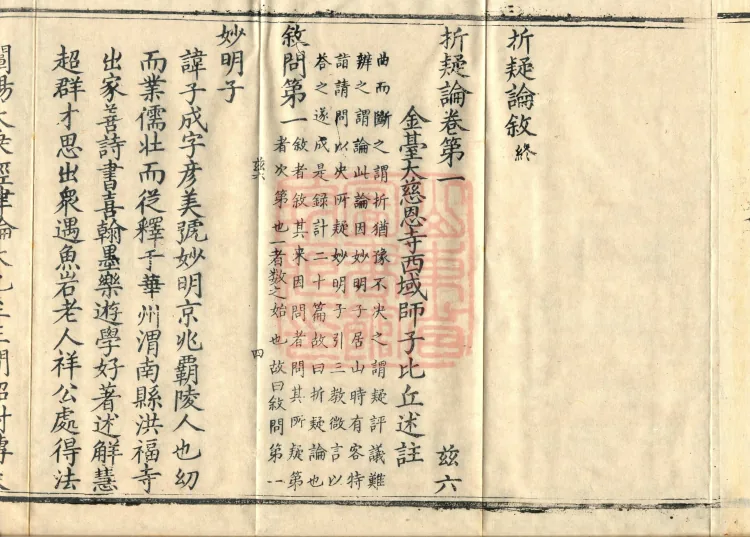 折疑論敘終
折疑論卷第一
茲六
金臺大慈恩寺西域師子比丘述註
曲而斷之謂折猶豫不決之謂疑評議難
辨之謂論此論因妙明子居山時有客特
詣請問以決所疑妙明子引三教微言以
答之遂成是錄計二十篇故曰折疑論也
敘問第一敘者敘其来因問者問其所疑第
者次第也一者數之始也故曰敘問第一
茲六
四
妙明子
諱子成字彥美號妙明京兆霸陵人也幼
而業儒壯而從釋于華州渭南縣洪福寺
出家善詩書喜翰墨樂遊學好著述解慧
超群才思出眾遇魚岩老人祥公處得法